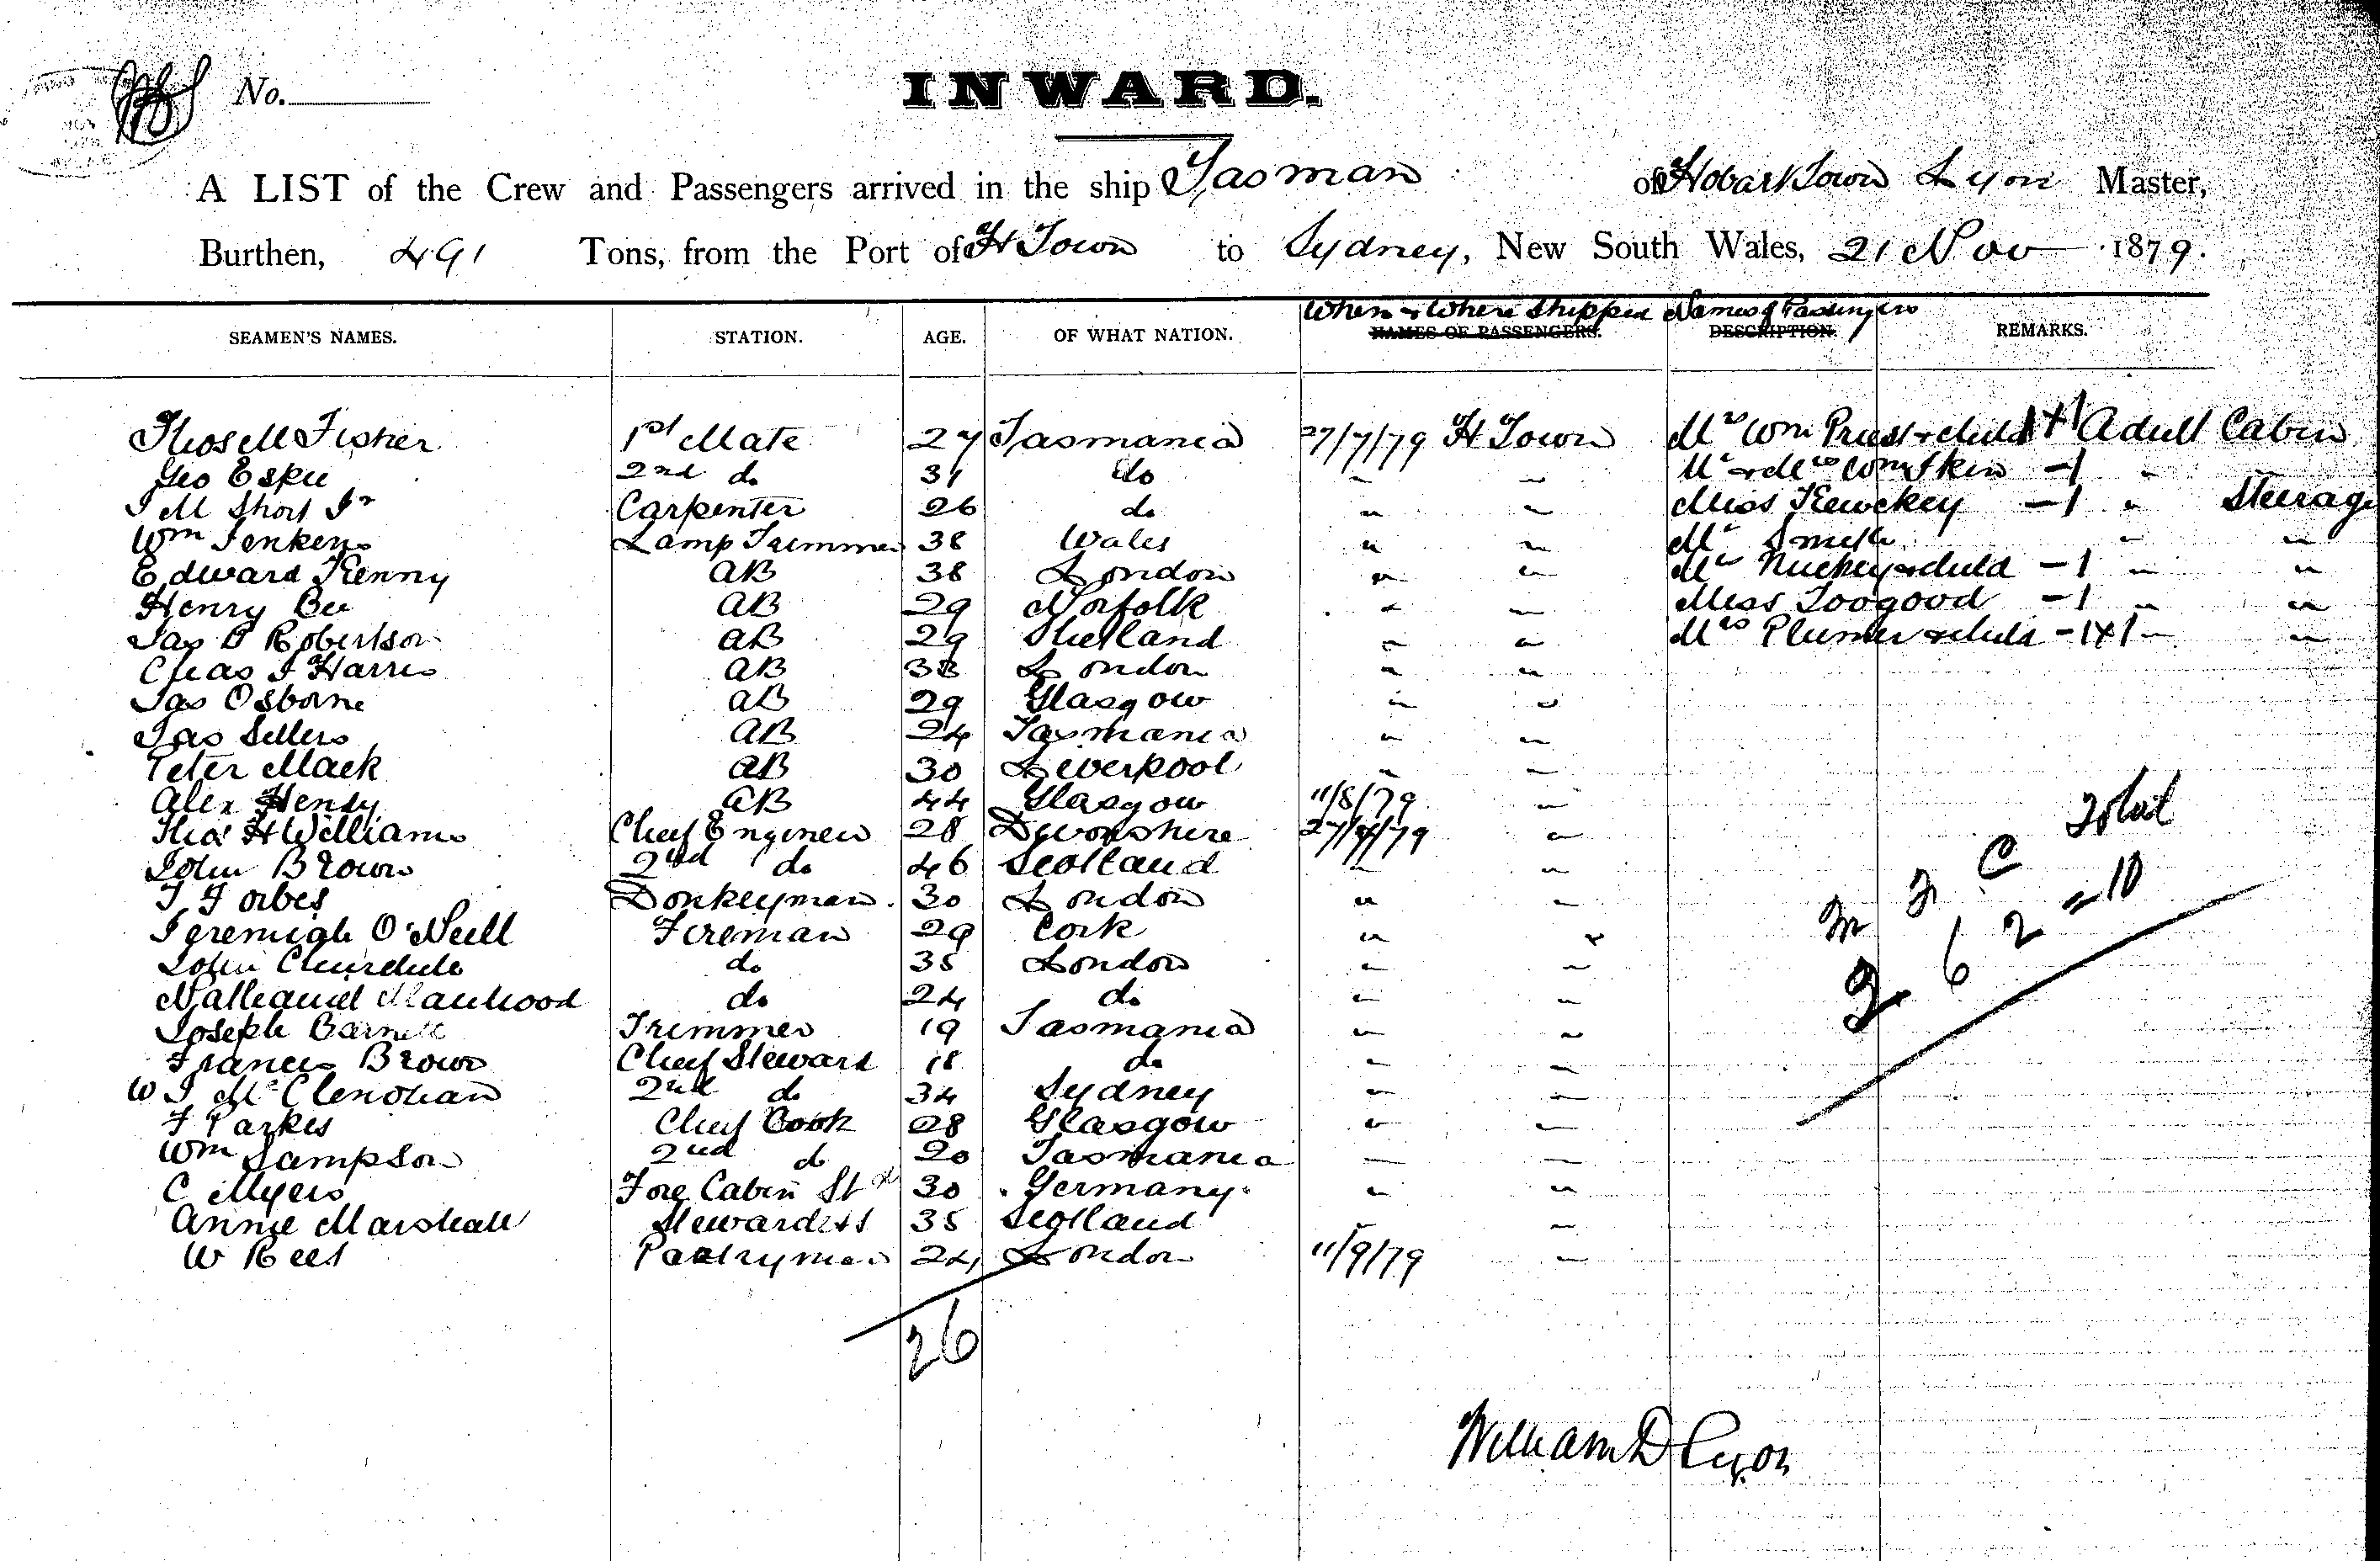 No.
INWARD.
A LIST of the Crew and Passengers arrived in the ship Tasman of Hobart Town Lyon Master,
Burthen, 491 Tons, from the Port of H Town to Sydney, New South Wales, 21 Nov 1879.
When & Where Shipped Names of Passengers
SEAMEN'S NAMES. STATION. AGE. OF WHAT NATION. NAMES OF PASSENGERS. DESCRIPTION. REMARKS.
Thos M Fisher 1st Mate 27 Tasmania 27/7/79 H Town Mrs Wm Priest & child 1+1 Adult Cabin
Geo Eskie 2nd do 31 do " " Mr & Mrs - 1 "
J M Short Jr Carpenter 26 do " " Miss - 1 " Steerage
Wm Jenkens Lamp Trimmer 38 Wales " " Mr Smith " "
Edward Kenny AB 38 London " " & child - 1 " "
Henry Bee AB 29 Norfolk " " Miss Toogood - 1 " "
Jas Robertson AB 29 Shetland " " Mrs Plumer & child - 1+1 " "
Chas J Harris AB 33 London " "
Jas Osborne AB 29 Glasgow " "
Jas Sellers AB 24 Tasmania " "
Peter Mack AB 30 Liverpool " "
Alex Hendy AB 44 Glasgow 11/8/79 "
Thos H Williams Chief Engineer 28 Devonshire 27/7/79 "
John Brown 2nd do 46 Scotland " "
T Forbes Donkeyman 30 London " "
Jeremiah O'Neill Fireman 29 Cork " "
John Churchill do 35 London " "
Nathaniel Manhood do 24 do " "
Joseph Barnett Trimmer 19 Tasmania " "
Francis Brown Chief Steward 18 do " "
W J McClenohan 2nd do 34 Sydney " "
F Parkes Chief Cook 28 Glasgow " "
Wm Sampson 2nd do 20 Tasmania " "
C Myers Fore Cabin Std 30 Germany " "
Annie Marshall Stewardess 35 Scotland " "
W Rees Pantryman 24 London 11/9/79 "
26
M F C Total
2 6 2 = 10
William D Lyon